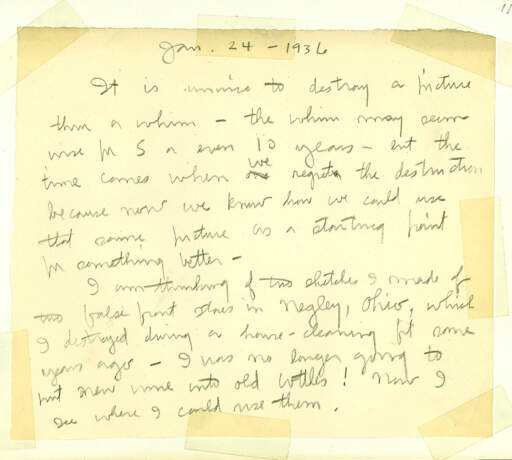 11
Jan. 24 - 1936
It is unwise to destroy a picture
thru a whim - the whim may seem
wise for 5 or even 10 years - but the
time comes when we regret the destruction
because now we know how we could use
that same picture as a starting point
for something better -
I am thinking of two sketches I made of
two false front stores in Negley, Ohio, which
I destroyed during a house-cleaning fit some
years ago - I was no longer going to
put new wine into old bottles! Now I
see where I could use them.